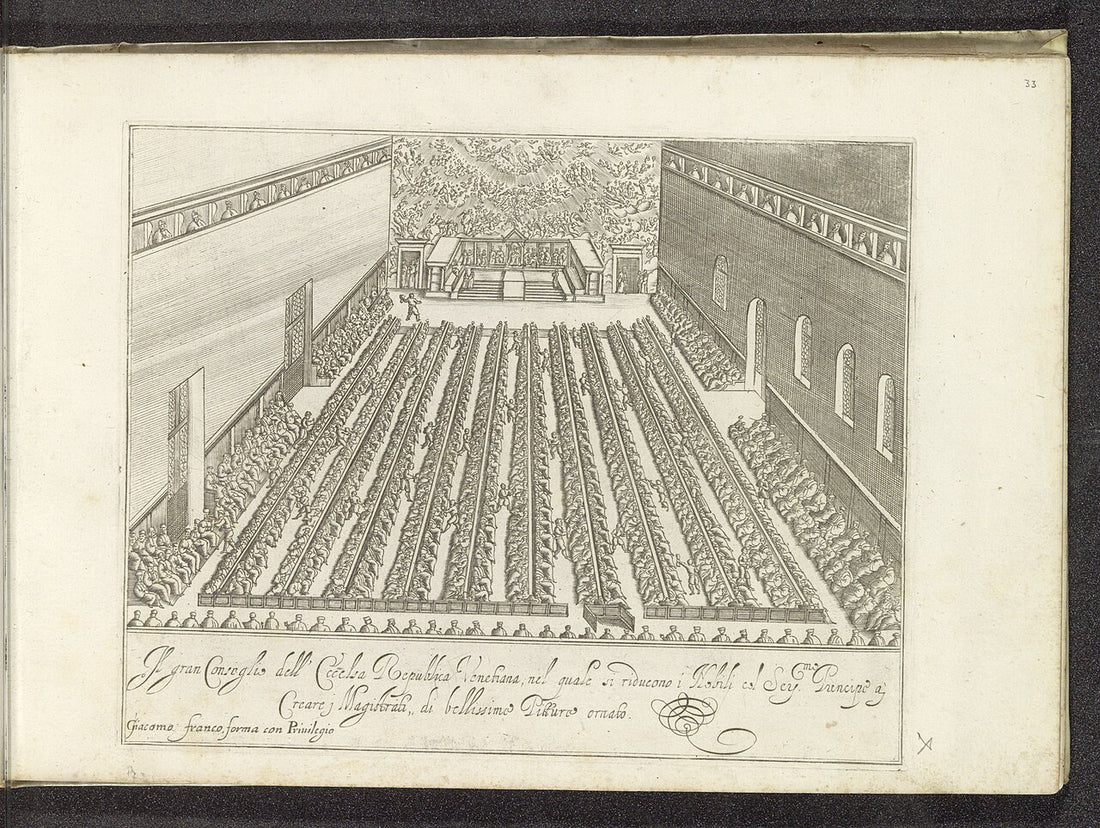 33
Il gran Conseglio dell' Eccelsa Republica Venetiana, nel quale si riducono i Nobili col Ser.mo Principe a
Creare i Magistrati, di bellissime Pitture ornato.
Giacomo franco, forma con Privilegio